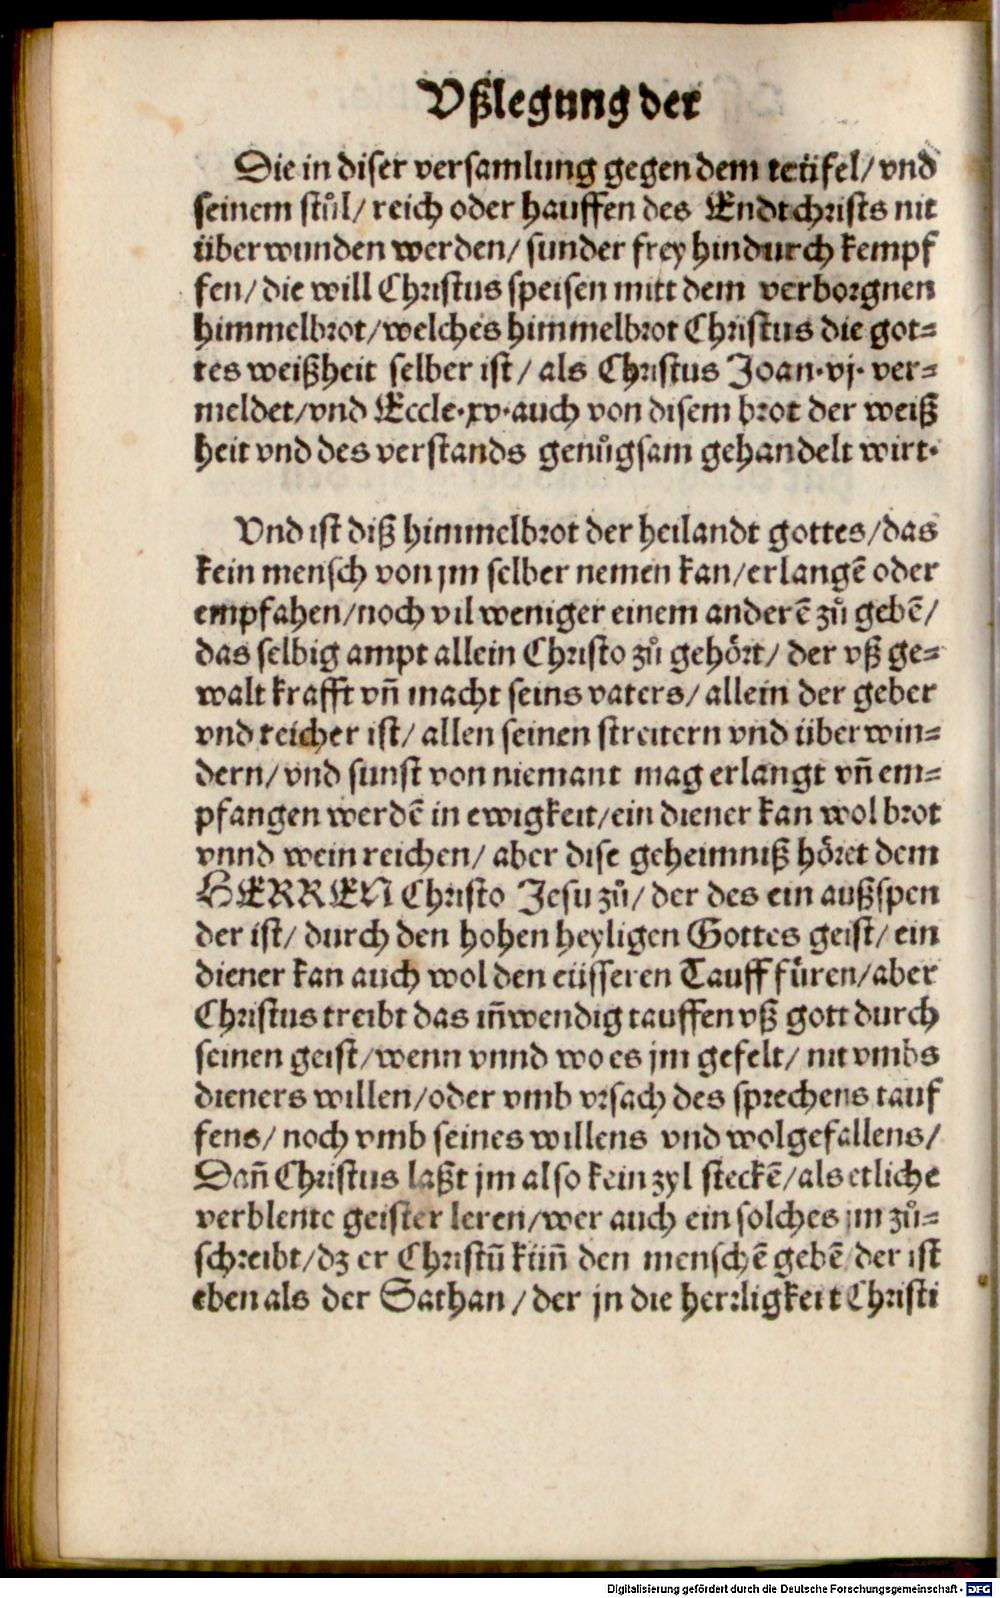 Vßlegung der
Die in diser versamlung gegen dem teüfel/ vnd
seinem stůl/ reich oder hauffen des Endtchrists nit
überwunden werden/ sunder frey hindurch kempf
fen/ die will Christus speisen mitt dem verborgnen
himmelbrot/ welches himmelbrot Christus die got=
tes weißheit selber ist/ als Christus Joan·vj· ver=
meldet/ vnd Eccle·xv· auch von disem brot der weiß
heit vnd des verstands genůgsam gehandelt wirt·
Vnd ist diß himmelbrot der heilandt gottes/ das
kein mensch von jm selber nemen kan/ erlangē oder
empfahen/ noch vil weniger einem anderē zů gebē/
das selbig ampt allein Christo zů gehört/ der vß ge=
walt krafft vñ macht seins vaters/ allein der geber
vnd reicher ist/ allen seinen streitern vnd überwin=
dern/ vnd sunst von niemant mag erlangt vñ em=
pfangen werdē in ewigkeit/ ein diener kan wol brot
vnnd wein reichen/ aber dise geheimniß höret dem
HERREN Christo Jesu zů/ der des ein außspen
der ist/ durch den hohen heyligen Gottes geist/ ein
diener kan auch wol den eüsseren Tauff füren/ aber
Christus treibt das iñwendig tauffen vß gott durch
seinen geist/ wenn vnnd wo es jm gefelt/ nit vmbs
dieners willen/ oder vmb vrsach des sprechens tauf
fens/ noch vmb seines willens vnd wolgefallens/
Dañ Christus laßt jm also kein zyl steckē/ als etliche
verblente geister leren/ wer auch ein solches jm zů=
schreibt/ dz er Christū küñ den menschē gebē der ist
eben als der Sathan/ der jn die herrligkeit Christi
Digitalisierung gefördert durch die Deutsche Forschungsgemeinschaft - DFG